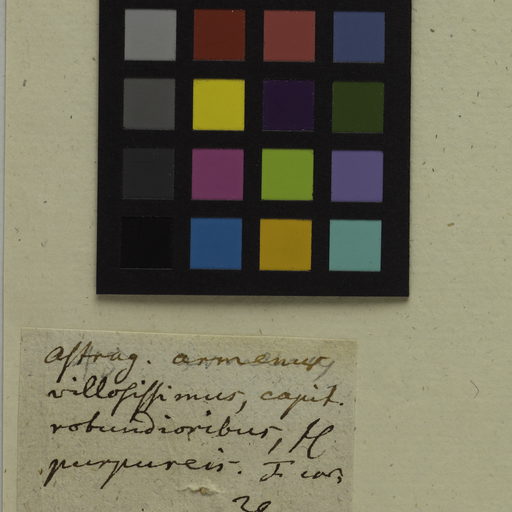 Astrag. armenus
villosissimus, capit.
rotundioribus, fl
purpureis. T. cor.
20